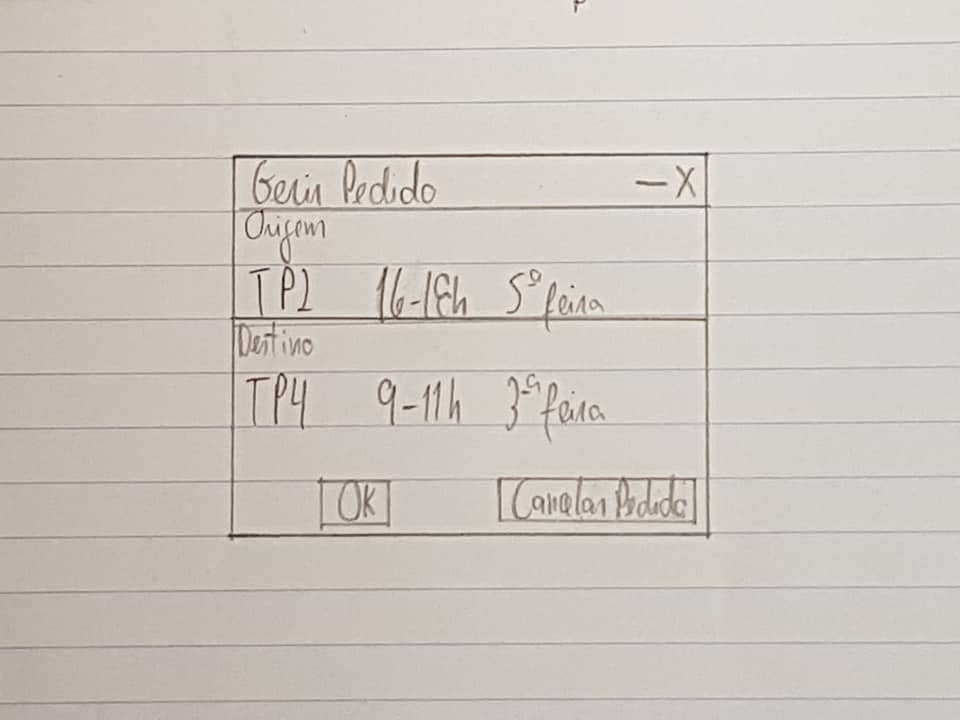 Gerir Pedido — X
Origem
TP2 16-18h 5ª feira
Destino
TP4 9-11h 3ª feira
OK Cancelar Pedido